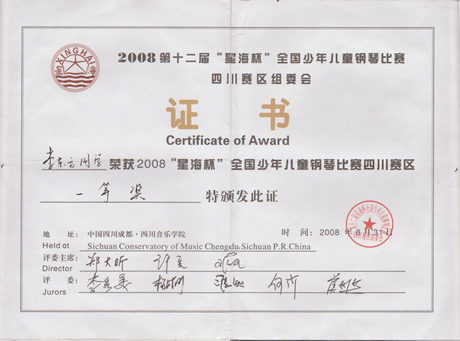 XINGHAI
2008第十二届“星海杯”全国少年儿童钢琴比赛
四川赛区组委会
证书
Certificate of Award
李东方同学荣获2008“星海杯”全国少年儿童钢琴比赛四川赛区
一等奖 特颁发此证
地 址: 中国四川成都·四川音乐学院 时 间: 2008年8月31日
Held at Sichuan Conservatory of Music Chengdu.Sichuan P.R.China
评委主席: 郑大昕
Director
评 委:
Jurors